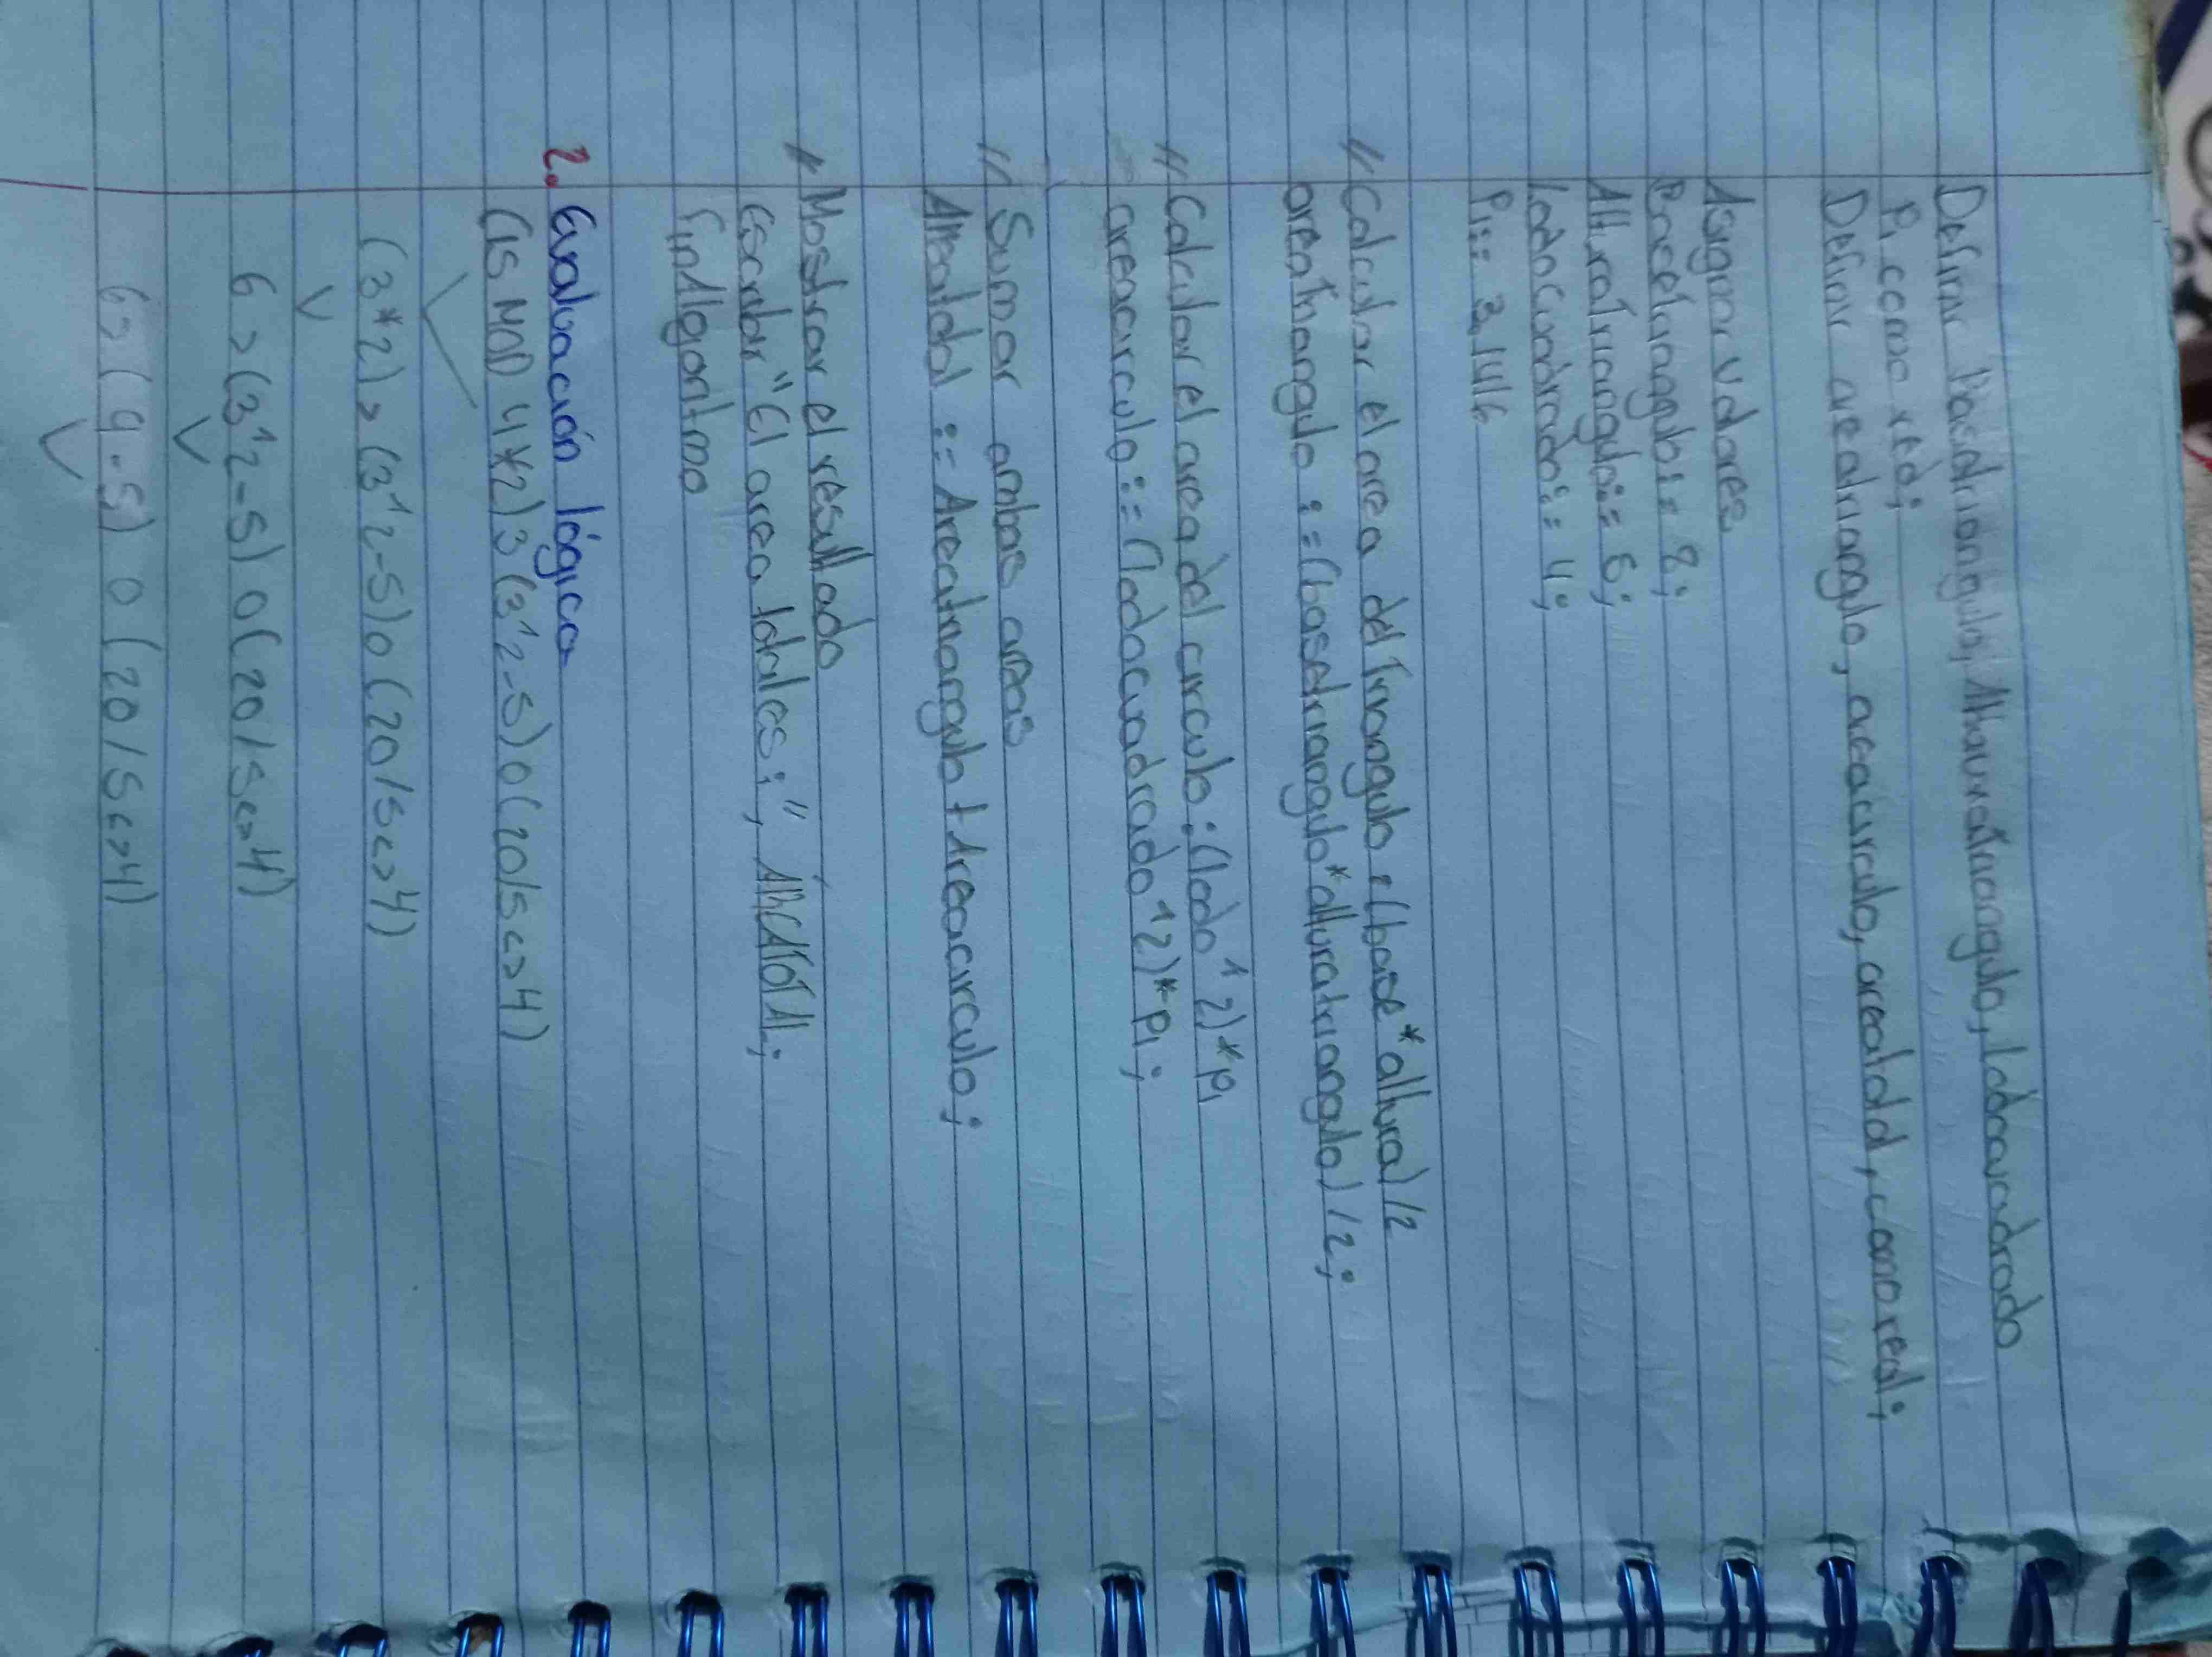 Definir Basetriangulo, Alturatriangulo, ladocuadrado
Pi como real;
Definir areatriangulo, areacirculo, areatotal, como real;
Asignar valores
Basetriangulo:= 8;
Alturatriangulo:= 6;
ladocuadrado:= 4;
Pi:= 3.1416
// Calcular el area del triangulo: (base*altura)/2
areatriangulo:=(basetriangulo*alturatriangulo)/2;
// Calcular el area del circulo: (lado^2)*pi
areacirculo:=(ladocuadrado^2)*pi;
// Sumar ambas areas
Areatotal := Areatriangulo+Areacirculo;
// Mostrar el resultado
Escribir "El area totales:", ÁREATOTAL;
FinAlgoritmo
2. Evaluación lógica
(15 MOD 4*2) > (3^2-5) O (20/5<>4)
(3*2)>(3^2-5) O (20/5<>4)
6>(3^2-5) O (20/5<>4)
6>(9-5) O (20/5<>4)